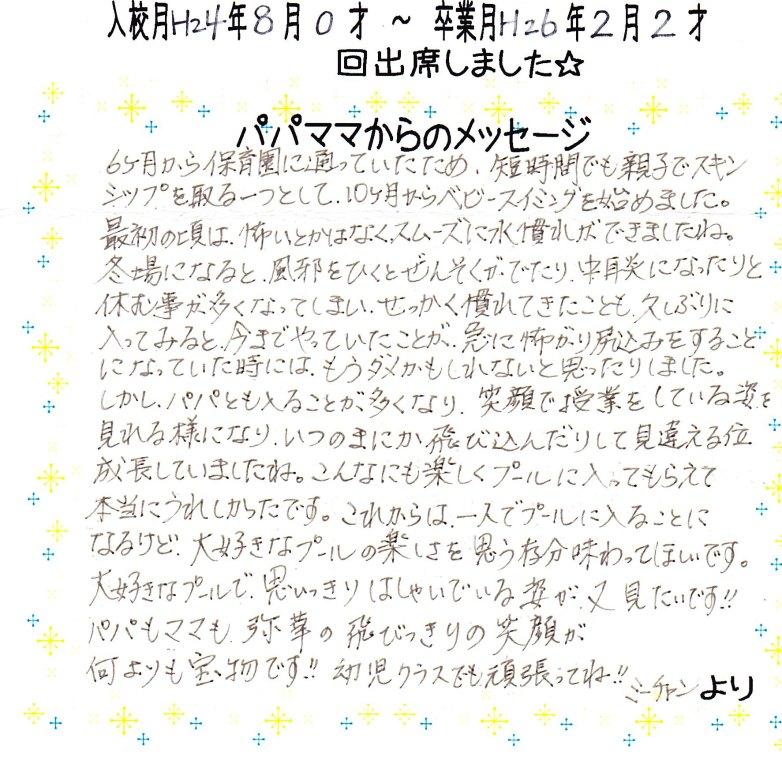 入校月H24年8月0才 ～ 卒業月H26年2月2才
回出席しました☆
パパママからのメッセージ
6ヶ月から保育園に通っていたため、短時間でも親子でスキン
シップを取る一つとして、10ヶ月からベビースイミングを始めました。
最初の頃は、怖いとかはなく、スムーズに水慣れができましたね。
冬場になると、風邪をひくとぜんそくがでたり、中耳炎になったりと
休む事が多くなってしまい、せっかく慣れてきたことも、久しぶりに
入ってみると、今までやっていたことが、急に怖がり尻込みをすること
になっていた時には、もうダメかもしれないと思ったりしました。
しかし、パパとも入ることが多くなり、笑顔で授業をしている姿を
見れる様になり、いつのまにか飛び込んだりして見違える位
成長していましたね。こんなにも楽しくプールに入ってもらえて
本当にうれしかったです。これからは、一人でプールに入ることに
なるけど、大好きなプールの楽しさを思う存分味わってほしいです。
大好きなプールで、思いっきりはしゃいでいる姿が、又見たいです!!
パパもママも、弥華の飛びっきりの笑顔が
何よりも宝物です!! 幼児クラスでも頑張ってね!!
ミーチャンより